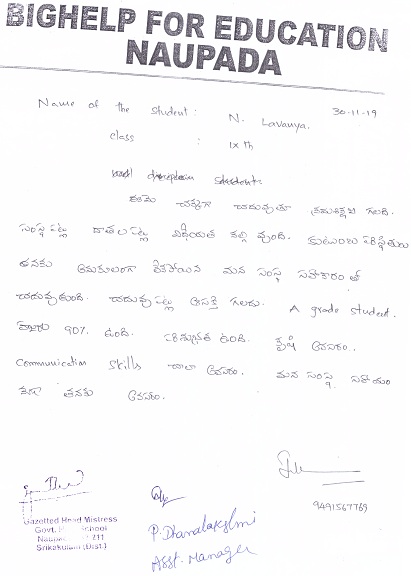 BIGHELP FOR EDUCATION
NAUPADA
30-11-19
Name of the student : N. Lavanya.
class : IX th
ఈమె చక్కగా చదువుతూ క్రమశిక్షణ గలది.
సంస్థ పట్ల దాతల పట్ల విధేయత కల్గి వుంది. కుటుంబ పరిస్థితులు
తనకు అనుకులంగా లేకపోయిన మన సంస్థ సహకారం తో
చదువుతుంది. చదువు పట్ల ఆసక్తి గలదు. A grade student.
హాజరు 90% ఉంది. ఉంది. కృషి అవసరం.
Communication Skills చాలా అవసరం. మన సంస్థ సహాయం
కూడా తనకు అవసరం.
9491567769
Gazetted Head Mistress
Govt. School
211
Srikakulam (Dist.)
P. Dhanalakshmi
Asst. Manager